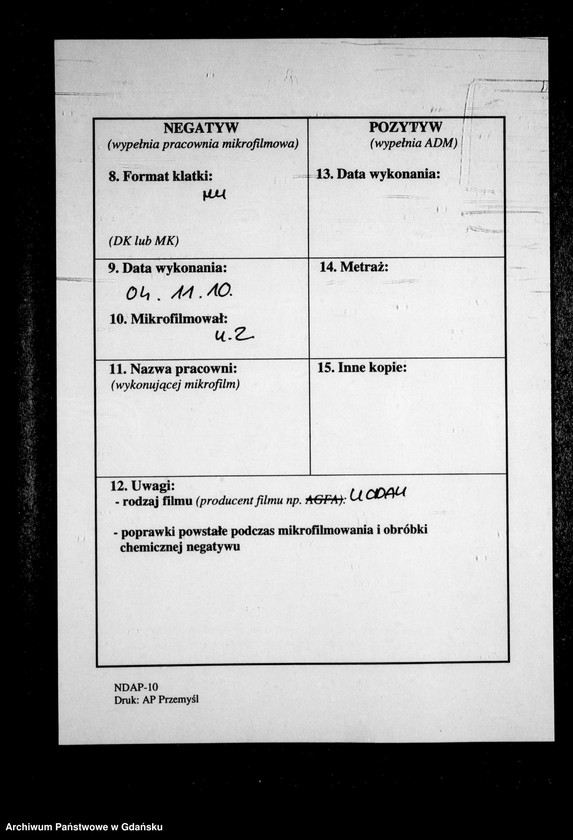 NEGATYW
(wypełnia pracownia mikrofilmowa)
8. Format klatki:
(DK lub MK)
9. Data wykonania:
04.11.10.
10. Mikrofilmował:
11. Nazwa pracowni:
(wykonującej mikrofilm)
POZYTYW
(wypełnia ADM)
13. Data wykonania:
14. Metraż:
15. Inne kopie:
12. Uwagi:
- rodzaj filmu (producent filmu np. AGFA):
- poprawki powstałe podczas mikrofilmowania i obróbki
chemicznej negatywu
NDAP-10
Druk: AP Przemyśl
Archiwum Państwowe w Gdańsku